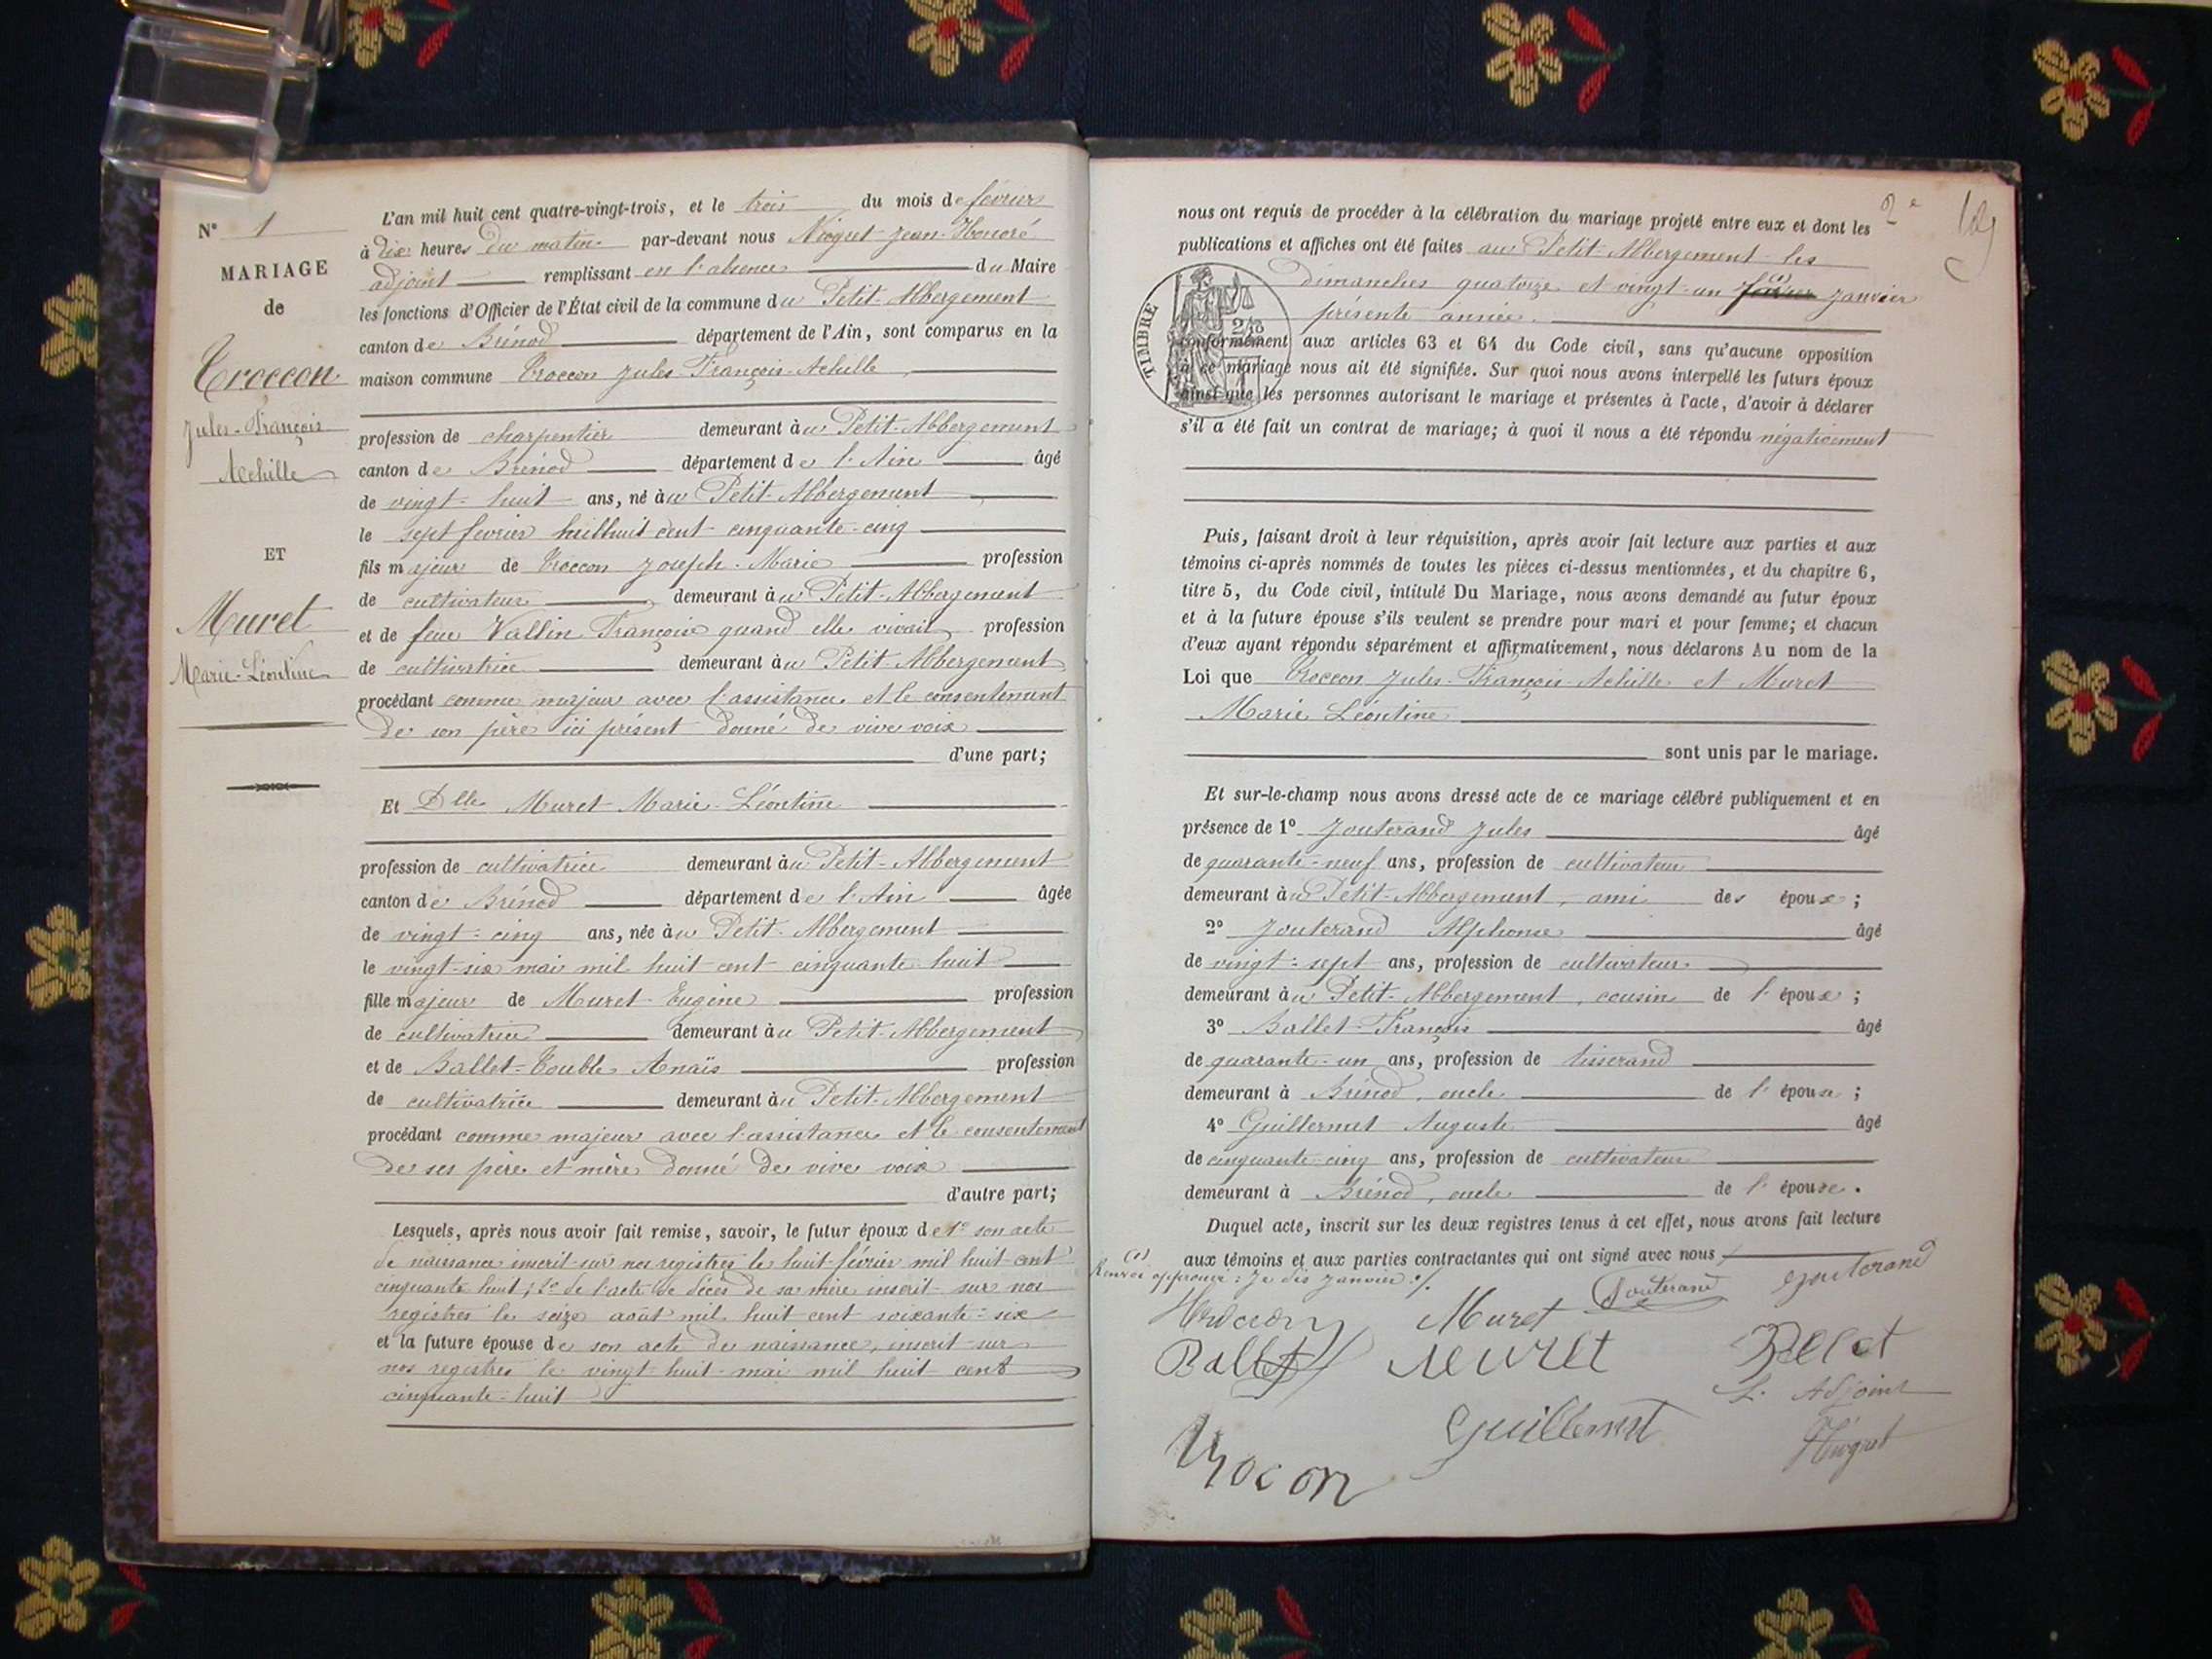 N° 1
MARIAGE
de
Troccon
Jules-François
Achille
ET
Muret
Marie-Léontine
L'an mil huit cent quatre-vingt-trois, et le trois du mois de février
à dix heures du matin par-devant nous Niogret Jean-Honoré
adjoint remplissant en l'absence du Maire
les fonctions d'Officier de l'État civil de la commune du Petit-Abbergement
canton de Brénod département de l'Ain, sont comparus en la
maison commune Troccon Jules-François-Achille
profession de charpentier demeurant au Petit-Abbergement
canton de Brénod département de l'Ain âgé
de vingt-huit ans, né au Petit-Abbergement
le sept février huit cent cinquante-cinq
fils majeur de Troccon Joseph-Marie profession
de cultivateur demeurant au Petit-Abbergement
et de feue Vallin Françoise quand elle vivait profession
de cultivatrice demeurant au Petit-Abbergement
procédant comme majeur avec l'assistance et le consentement
de son père ici présent donné de vive voix
d'une part;
Et Dlle Muret Marie-Léontine
profession de cultivatrice demeurant au Petit-Abbergement
canton de Brénod département de l'Ain âgée
de vingt-cinq ans, née au Petit-Abbergement
le vingt-six mai mil huit cent cinquante huit
fille majeur de Muret Eugène profession
de cultivatrice demeurant au Petit-Abbergement
et de Ballet-Touble Anaïs profession
de cultivatrice demeurant au Petit-Abbergement
procédant comme majeur avec l'assistance et le consentement
de ses père et mère donné de vive voix
d'autre part;
Lesquels, après nous avoir fait remise, savoir, le futur époux de 1° son acte
de naissance inscrit sur nos registres le huit février mil huit cent
cinquante huit; 2° de l'acte de décès de sa mère inscrit sur nos
registres le seize août mil huit cent soixante-six
et la future épouse de son acte de naissance, inscrit sur
nos registres le vingt-huit mai mil huit cent
cinquante-huit
2e
nous ont requis de procéder à la célébration du mariage projeté entre eux et dont les
publications et affiches ont été faites au Petit-Abbergement les
dimanches quatorze et vingt-un février (1) janvier
présente année.
TIMBRE
conformément aux articles 63 et 64 du Code civil, sans qu'aucune opposition
à ce mariage nous ait été signifiée. Sur quoi nous avons interpellé les futurs époux
ainsi que les personnes autorisant le mariage et présentes à l'acte, d'avoir à déclarer
s'il a été fait un contrat de mariage; à quoi il nous a été répondu négativement
Puis, faisant droit à leur réquisition, après avoir fait lecture aux parties et aux
témoins ci-après nommés de toutes les pièces ci-dessus mentionnées, et du chapitre 6,
titre 5, du Code civil, intitulé Du Mariage, nous avons demandé au futur époux
et à la future épouse s'ils veulent se prendre pour mari et pour femme; et chacun
d'eux ayant répondu séparément et affirmativement, nous déclarons Au nom de la
Loi que Troccon Jules-François-Achille et Muret
Marie Léontine
sont unis par le mariage.
Et sur-le-champ nous avons dressé acte de ce mariage célébré publiquement et en
présence de 1° Jouterand Jules âgé
de quarante-neuf ans, profession de cultivateur
demeurant au Petit-Abbergement, ami des époux;
2° Jouterand Alphonse âgé
de vingt-sept ans, profession de cultivateur
demeurant au Petit-Abbergement, cousin de l'époux;
3° Ballet François âgé
de quarante-un ans, profession de tisserand
demeurant à Brénod, oncle de l'épouse;
4° Guillermet Auguste âgé
de cinquante-cinq ans, profession de cultivateur
demeurant à Brénod, oncle de l'épouse.
Duquel acte, inscrit sur les deux registres tenus à cet effet, nous avons fait lecture
aux témoins et aux parties contractantes qui ont signé avec nous
(1) Renvoi approuvé: Je dis janvier ./.
Muret Jouterand Jouterand
Ballet Muret Ballet
L'Adjoint
Guillermet Niogret
Trocon